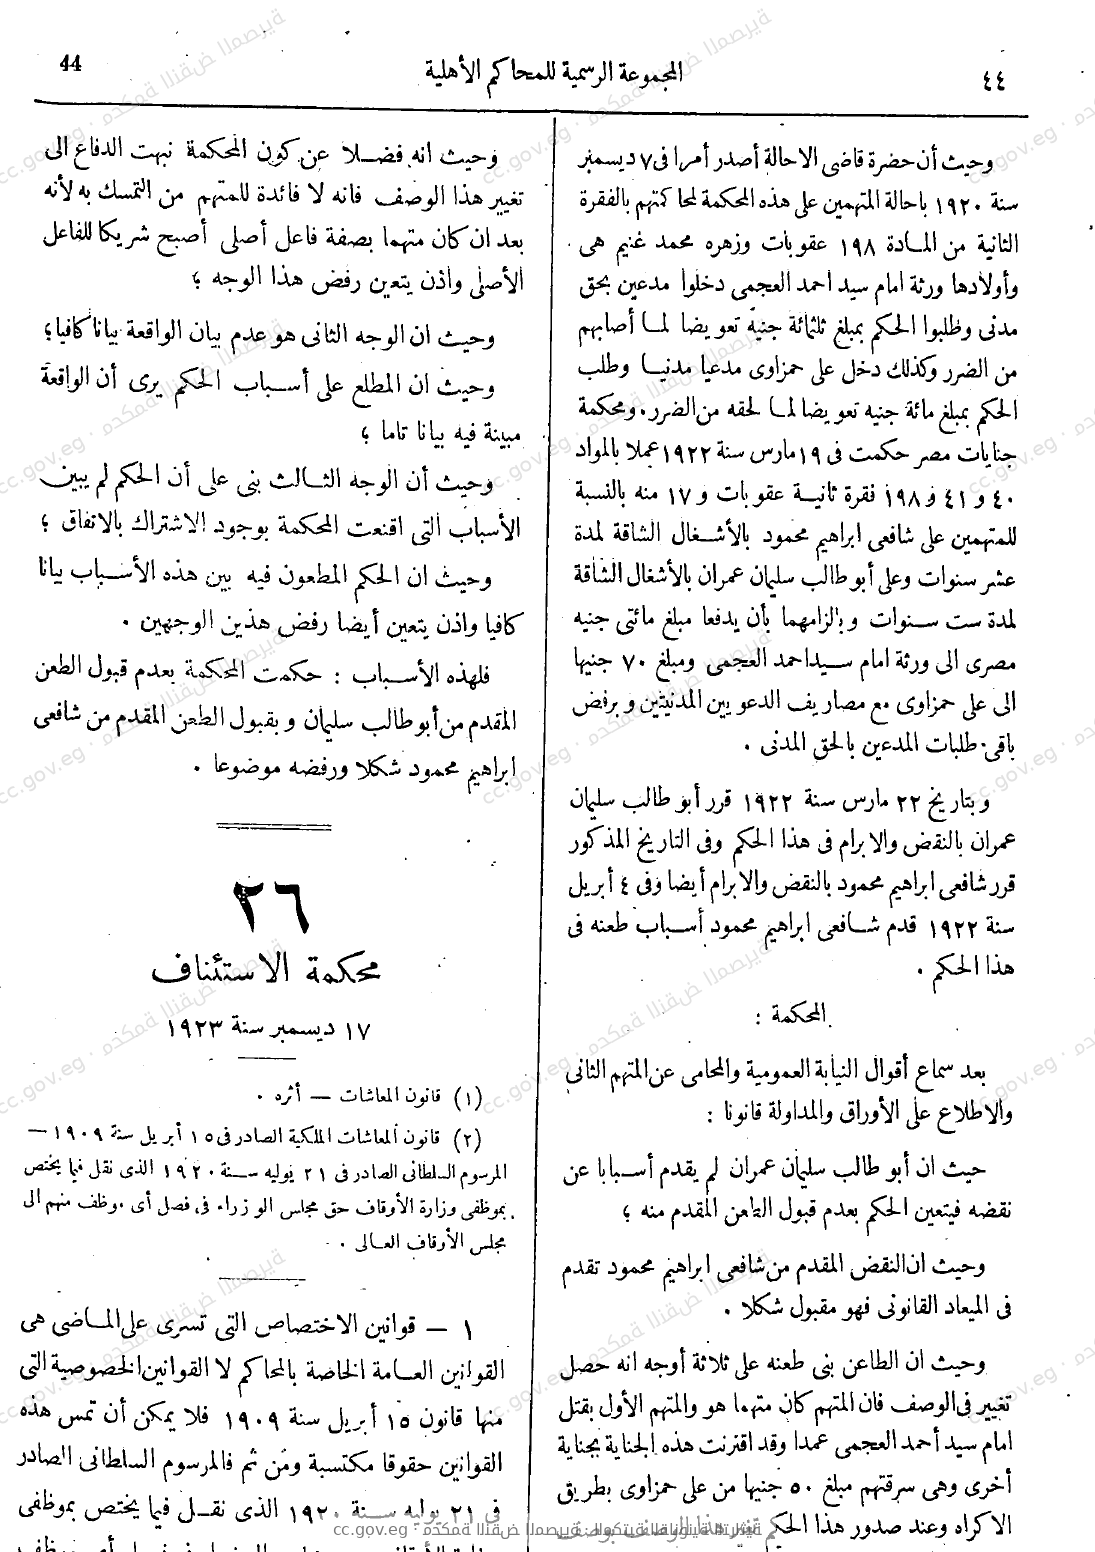 ٤٤
المجموعة الرسمية للمحاكم الأهلية
44
وحيث أن حضرة قاضى الاحالة أصدر أمرا فى ٧ ديسمبر
سنة ١٩٢٠ باحالة المتهمين على هذه المحكمة لمحاكمتهم بالفقرة
الثانية من المادة ١٩٨ عقوبات وزهره محمد غنيم هى
وأولادها ورثة امام سيد احمد العجمى دخلوا مدعين بحق
مدنى وطلبوا الحكم بمبلغ ثلثمائة جنيه تعويضا لما أصابهم
من الضرر وكذلك دخل على حمزاوى مدعيا مدنيا وطلب
الحكم بمبلغ مائة جنيه تعويضا لما لحقه من الضرر. ومحكمة
جنايات مصر حكمت فى ١٩ مارس سنة ١٩٢٢ عملا بالمواد
٤٠ و ٤١ و ١٩٨ فقرة ثانية عقوبات و ١٧ منه بالنسبة
للمتهمين على شافعى ابراهيم محمود بالأشغال الشاقة لمدة
عشر سنوات وعلى أبو طالب سليمان عمران بالأشغال الشاقة
لمدة ست سنوات وبالزامهما بأن يدفعا مبلغ مائتى جنيه
مصرى الى ورثة امام سيد احمد العجمى ومبلغ ٧٠ جنيها
الى على حمزاوى مع مصاريف الدعويين المدنيتين وبرفض
باقى طلبات المدعين بالحق المدنى .
وبتاريخ ٢٢ مارس سنة ١٩٢٢ قرر أبو طالب سليمان
عمران بالنقض والابرام فى هذا الحكم وفى التاريخ المذكور
قرر شافعى ابراهيم محمود بالنقض والابرام أيضا وفى ٤ أبريل
سنة ١٩٢٢ قدم شافعى ابراهيم محمود أسباب طعنه فى
هذا الحكم .
المحكمة :
بعد سماع أقوال النيابة العمومية والمحامى عن المتهم الثانى
والاطلاع على الأوراق والمداولة قانونا :
حيث ان أبو طالب سليمان عمران لم يقدم أسبابا عن
نقضه فيتعين الحكم بعدم قبول الطعن المقدم منه ؛
وحيث ان النقض المقدم من شافعى ابراهيم محمود تقدم
فى الميعاد القانونى فهو مقبول شكلا .
وحيث ان الطاعن بنى طعنه على ثلاثة أوجه انه حصل
تغيير فى الوصف فان المتهم كان متهما هو والمتهم الأول بقتل
امام سيد أحمد العجمى عمدا وقد اقترنت هذه الجناية بجناية
أخرى وهى سرقتهم مبلغ ٥٠ جنيها من على حمزاوى بطريق
الاكراه وعند صدور هذا الحكم تغير هذا الوصف بوصف
وحيث انه فضلا عن كون المحكمة نبهت الدفاع الى
تغيير هذا الوصف فانه لا فائدة للمتهم من التمسك به لأنه
بعد ان كان متهما بصفة فاعل أصلى أصبح شريكا للفاعل
الأصلى واذن يتعين رفض هذا الوجه ؛
وحيث ان الوجه الثانى هو عدم بيان الواقعة بيانا كافيا؛
وحيث ان المطلع على أسباب الحكم يرى أن الواقعة
مبينة فيه بيانا تاما ؛
وحيث أن الوجه الثالث بنى على أن الحكم لم يبين
الأسباب التى اقنعت المحكمة بوجود الاشتراك بالاتفاق ؛
وحيث ان الحكم المطعون فيه بين هذه الأسباب بيانا
كافيا واذن يتعين أيضا رفض هذين الوجهين .
فلهذه الأسباب : حكمت المحكمة بعدم قبول الطعن
المقدم من أبو طالب سليمان وبقبول الطعن المقدم من شافعى
ابراهيم محمود شكلا ورفضه موضوعا .
٢٦
محكمة الاستئناف
١٧ ديسمبر سنة ١٩٢٣
(١) قانون المعاشات — أثره .
(٢) قانون المعاشات الملكية الصادر فى ١٥ أبريل سنة ١٩٠٩ —
المرسوم السلطانى الصادر فى ٢١ يوليه سنة ١٩٢٠ الذى نقل فيما يختص
بموظفى وزارة الأوقاف حق مجلس الوزراء فى فصل أى موظف منهم الى
مجلس الأوقاف العالى .
١ — قوانين الاختصاص التى تسرى على الماضى هى
القوانين العامة الخاصة بالمحاكم لا القوانين الخصوصية التى
منها قانون ١٥ أبريل سنة ١٩٠٩ فلا يمكن أن تمس هذه
القوانين حقوقا مكتسبة ومن ثم فالمرسوم السلطانى الصادر
فى ٢١ يوليه سنة ١٩٢٠ الذى نقل فيما يختص بموظفى